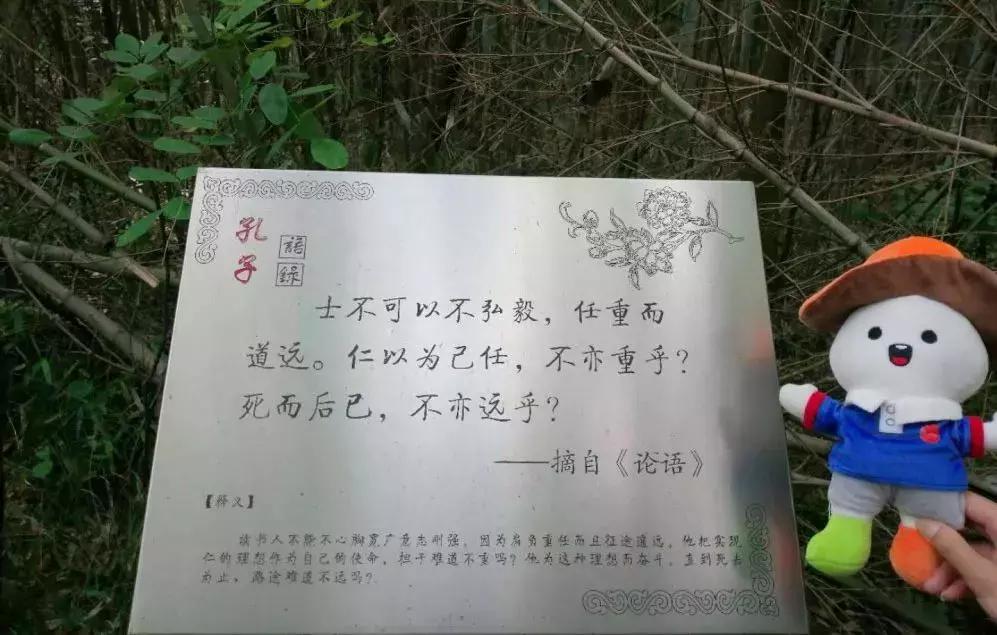 孔子
語録
士不可以不弘毅，任重而
道远。仁以为己任，不亦重乎？
死而后已，不亦远乎？
——摘自《论语》
【释义】
读书人不能不心胸宽广意志刚强，因为肩负重任而且征途遥远。他把实现
仁的理想作为自己的使命，担子难道不重吗？他为这种理想而奋斗，直到死去
为止，路途难道不远吗？